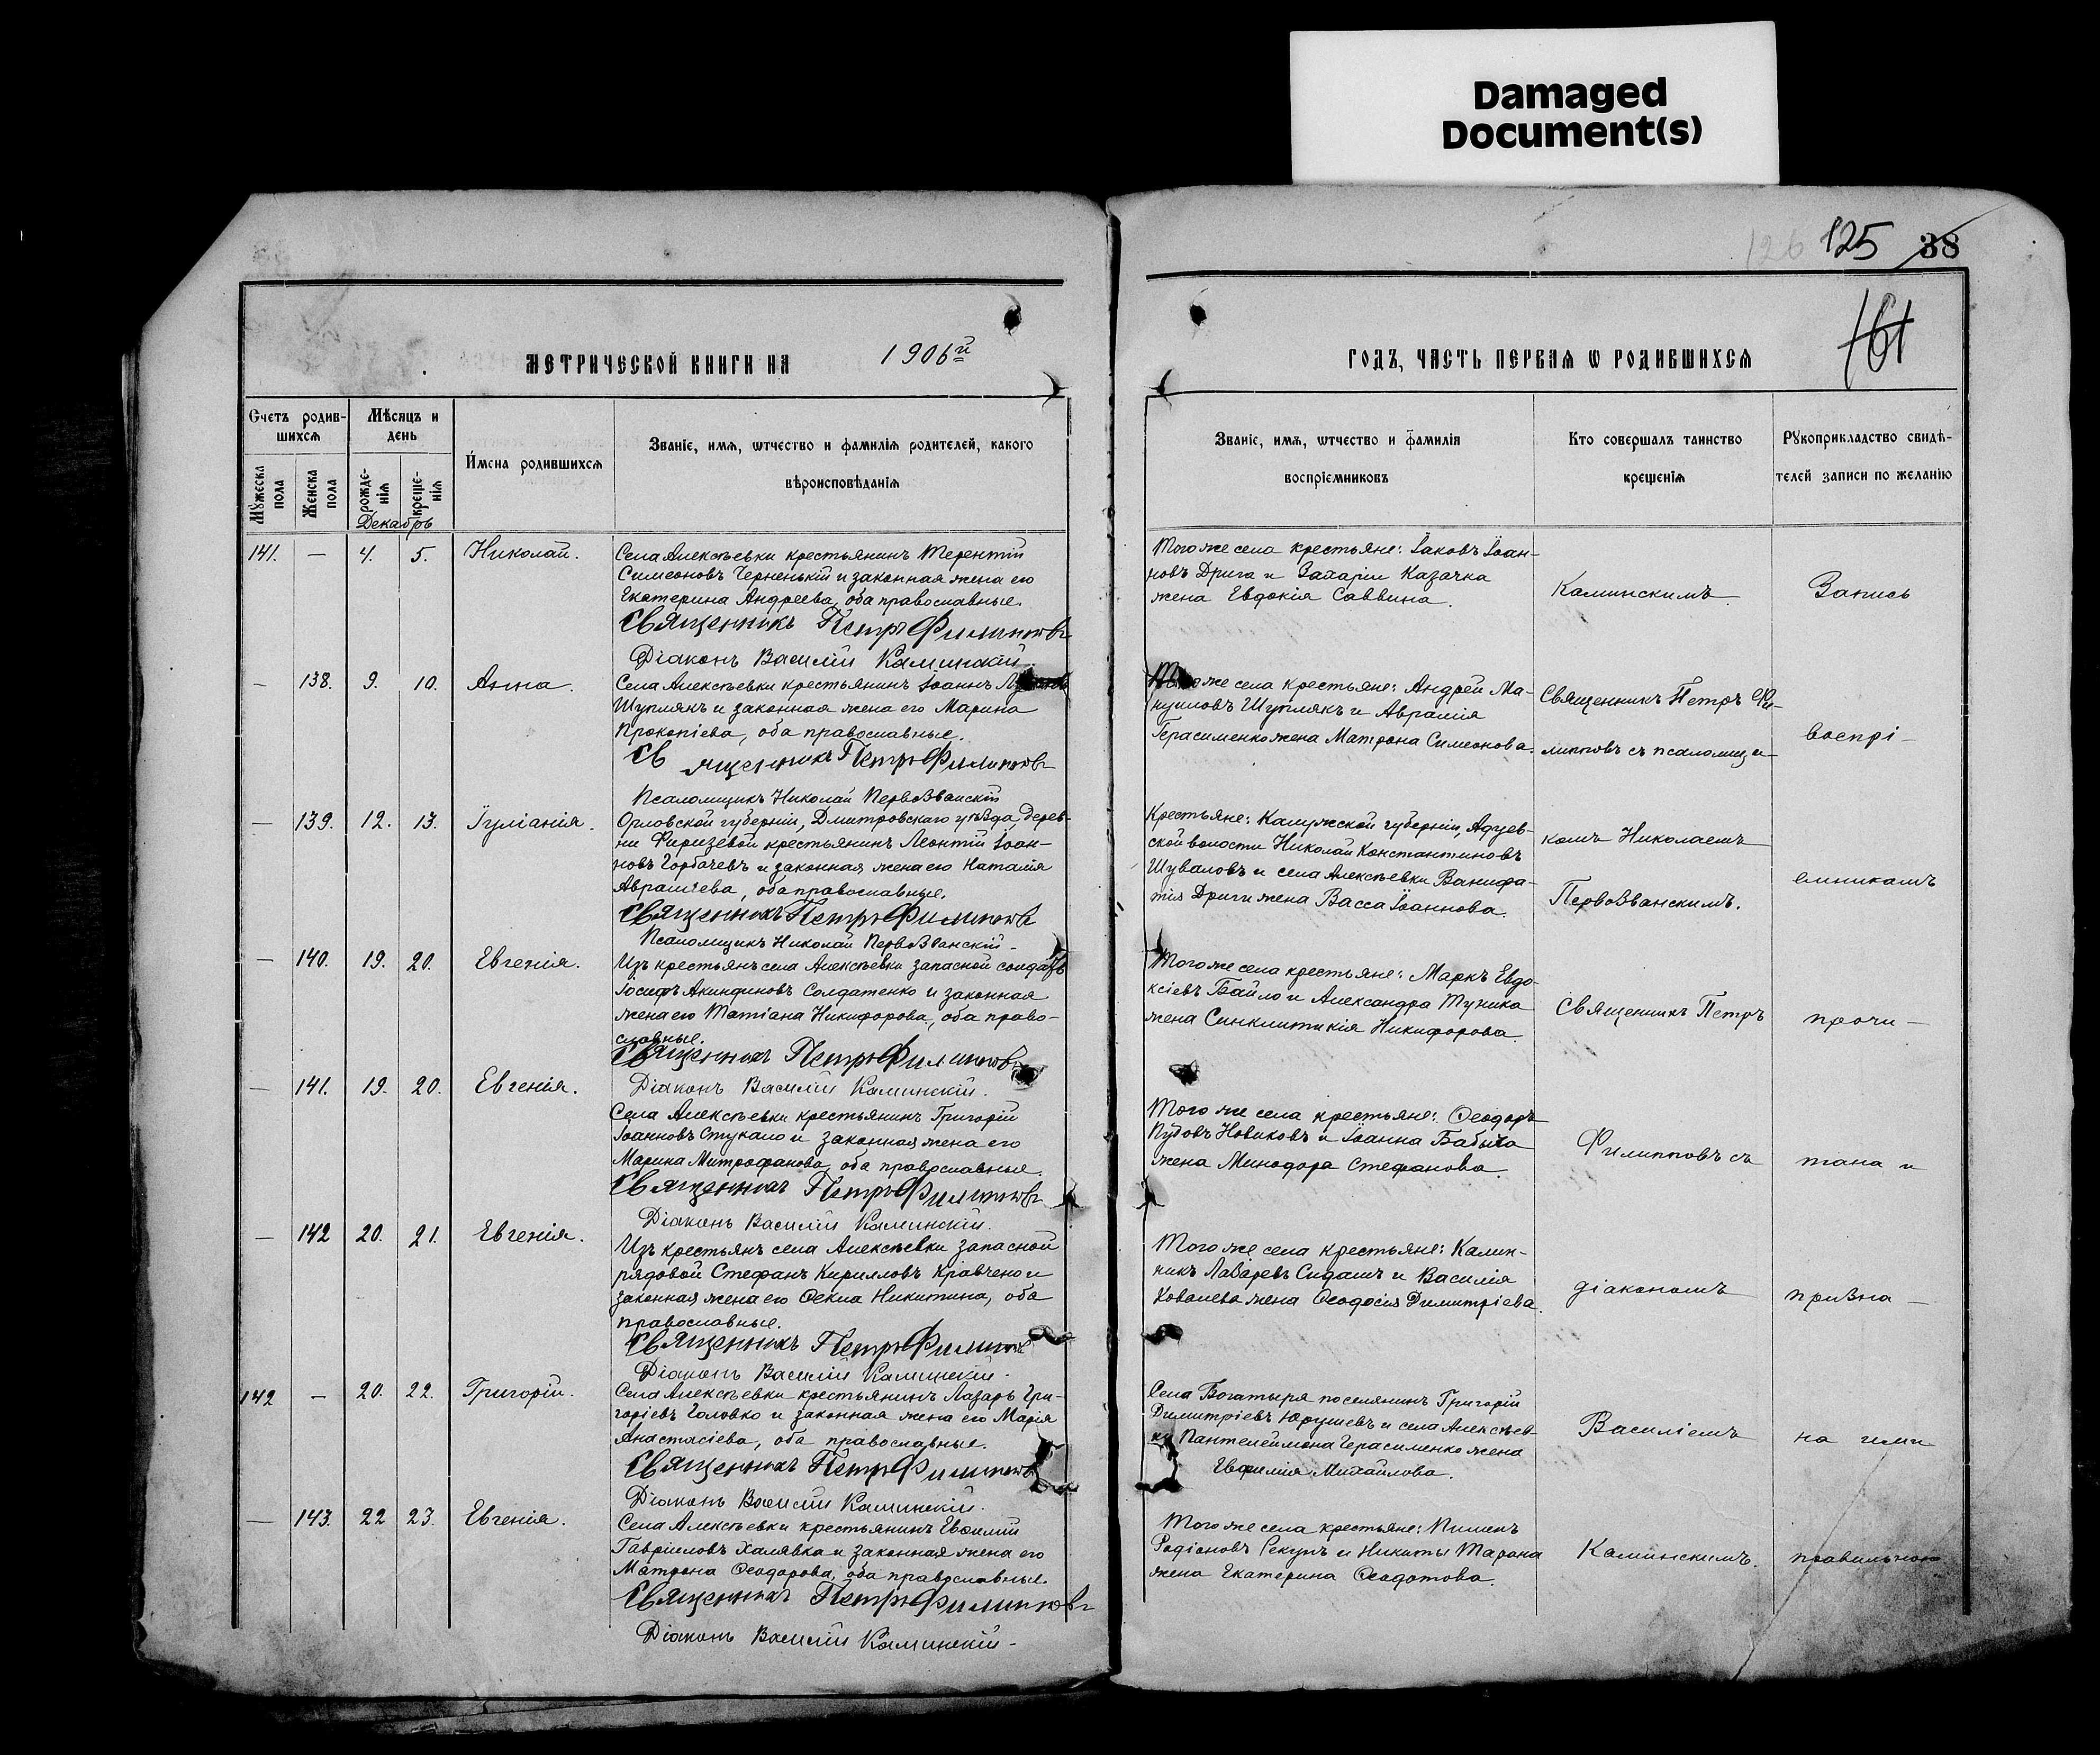 Damaged
Document(s)
126 125 38
161
МЕТРИЧЕСКОЙ КНИГИ НА 1906й
ГОДЪ, ЧАСТЬ ПЕРВАЯ Ѡ РОДИВШИХСЯ
Счетъ родив-
шихся
Мѣсяцъ и
день
Мꙋжеска пола
Женска пола
рожде-
нія
креще-
нія
Имена родившихся
Званіе, имя, ѡтчество и фамилія родителей, какого
вѣроисповѣданія
Званіе, имя, ѡтчество и фамилія
воспріемниковъ
Кто совершалъ таинство
крещенія
Рꙋкоприкладство свидѣ-
телей записи по желанію
Декабрь
141. — 4. 5. Николай.
Села Алексѣевки крестьянинъ Терентій
Симеоновъ Черненькій и законная жена его
Екатерина Андреева, оба православные.
Священникъ Петръ Филипповъ
Діаконъ Василій Каминскій.
Того же села крестьяне: Іаковъ Іоан-
новъ Дрига и Захаріи Казачка
жена Евдокія Саввина.
Каминскимъ.
Запись
— 138. 9. 10. Анна.
Села Алексѣевки крестьянинъ Іоаннъ
Шуплякъ и законная жена его Марина
Прокопіева, оба православные.
Священникъ Петръ Филипповъ
Псаломщикъ Николай Первозванскій
Того же села крестьяне: Андрей Ма-
нуиловъ Шуплякъ и Аврамія
Герасименко жена Матрона Симеонова.
Священникъ Петръ Фи-
липповъ съ псаломщи-
воспрі-
— 139. 12. 13. Іуліанія.
Орловской губерніи, Дмитровскаго уѣзда, дерев-
ни Фиризевой крестьянинъ Леонтій Іоан-
новъ Горбачевъ и законная жена его Наталія
Авраміева, оба православные.
Священникъ Петръ Филипповъ
Псаломщикъ Николай Первозванскій-
Крестьяне: Калужской губерніи, Адуев-
ской волости Николай Константиновъ
Шуваловъ и села Алексѣевки Ванифа-
тія Дриги жена Васса Іоаннова.
комъ Николаемъ
Первозванскимъ.
емникамъ
— 140. 19. 20. Евгенія.
Изъ крестьянъ села Алексѣевки запасной солдатъ
Іосифъ Акиндиновъ Солдатенко и законная
жена его Татіана Никифорова, оба право-
славные.
Священникъ Петръ Филипповъ
Діаконъ Василій Каминскій.
Того же села крестьяне: Маркъ Евдо-
ксіевъ Байло и Александра Туника
жена Синклитикія Никифорова.
Священникъ Петръ
прочи-
— 141. 19. 20. Евгенія.
Села Алексѣевки крестьянинъ Григорій
Іоанновъ Стукало и законная жена его
Марина Митрофанова, оба православные.
Священникъ Петръ Филипповъ
Діаконъ Василій Каминскій.
Того же села крестьяне: Ѳеодоръ
Пудовъ Новиковъ и Іоанна Бабыча
жена Минодора Стефанова.
Филипповъ съ
тана и
— 142 20. 21. Евгенія.
Изъ крестьянъ села Алексѣевки запасной
рядовой Стефанъ Кирилловъ Кравченко и
законная жена его Ѳекла Никитина, оба
православные.
Священникъ Петръ Филипповъ
Діаконъ Василій Каминскій.
Того же села крестьяне: Калин-
никъ Лазаревъ Сидашъ и Василія
Ковалева жена Ѳеодосія Димитріева.
діакономъ
призна-
142 — 20. 22. Григорій.
Села Алексѣевки крестьянинъ Лазарь Гри-
горіевъ Головко и законная жена его Марія
Анастасіева, оба православные.
Священникъ Петръ Филипповъ
Діаконъ Василій Каминскій.
Села Богатыря поселянинъ Григорій
Димитріевъ Юрушевъ и села Алексѣев-
ки Пантелеймона Герасименко жена
Евфимія Михайлова.
Василіемъ
на ими
— 143. 22 23. Евгенія.
Села Алексѣевки крестьянинъ Евфимій
Гавриловъ Халявка и законная жена его
Матрона Ѳеодорова, оба православные.
Священникъ Петръ Филипповъ
Діаконъ Василій Каминскій-
Того же села крестьяне: Пименъ
Родіоновъ Рекунъ и Никиты Тарана
жена Екатерина Ѳеодотова.
Каминскимъ.
правильною